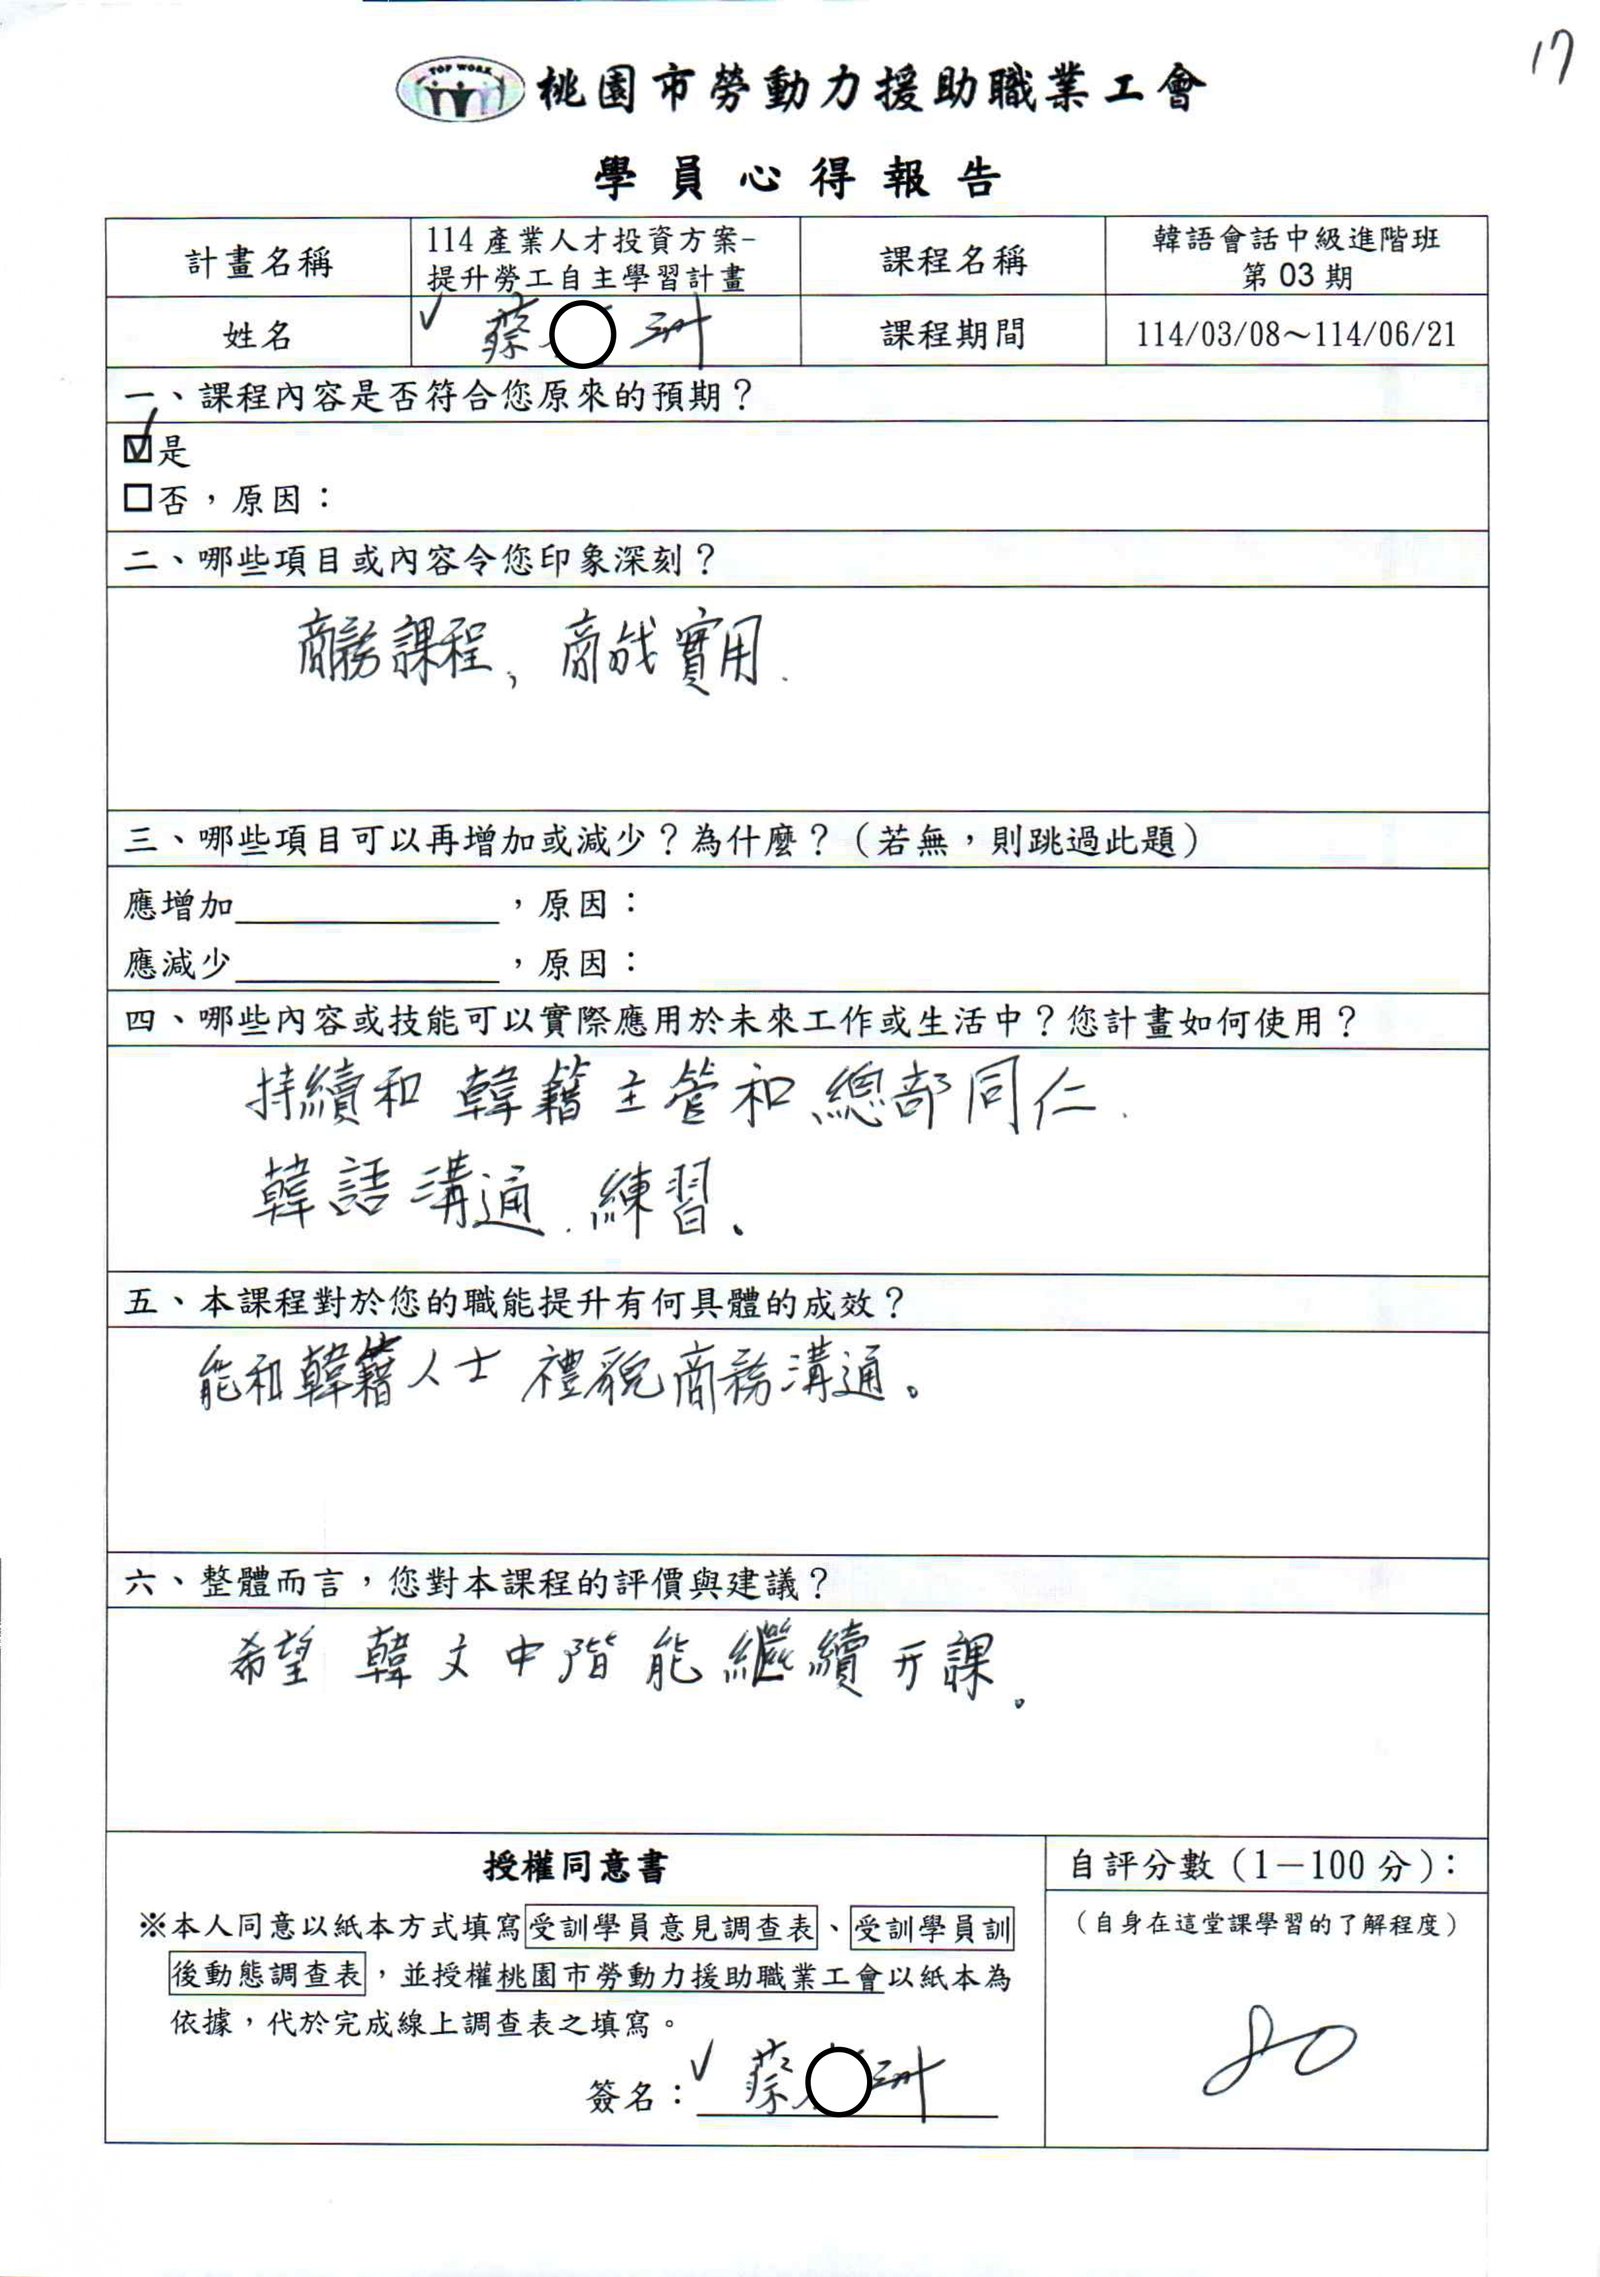 17
TOP WORK
桃園市勞動力援助職業工會
學員心得報告
計畫名稱
114產業人才投資方案-
提升勞工自主學習計畫
課程名稱
韓語會話中級進階班
第03期
姓名
✓ 蔡 珊
課程期間
114/03/08～114/06/21
一、課程內容是否符合您原來的預期？
☑是
□否，原因：
二、哪些項目或內容令您印象深刻？
商務課程, 商 實用.
三、哪些項目可以再增加或減少？為什麼？（若無，則跳過此題）
應增加＿＿＿＿＿＿＿，原因：
應減少＿＿＿＿＿＿＿，原因：
四、哪些內容或技能可以實際應用於未來工作或生活中？您計畫如何使用？
持續和韓籍主管和總部同仁.
韓語溝通.練習。
五、本課程對於您的職能提升有何具體的成效？
能和韓籍人士禮貌商務溝通。
六、整體而言，您對本課程的評價與建議？
希望韓文中階能繼續开課。
授權同意書
※本人同意以紙本方式填寫受訓學員意見調查表、受訓學員訓
後動態調查表，並授權桃園市勞動力援助職業工會以紙本為
依據，代於完成線上調查表之填寫。
簽名：✓ 蔡 珊
自評分數（1－100分）：
（自身在這堂課學習的了解程度）
80